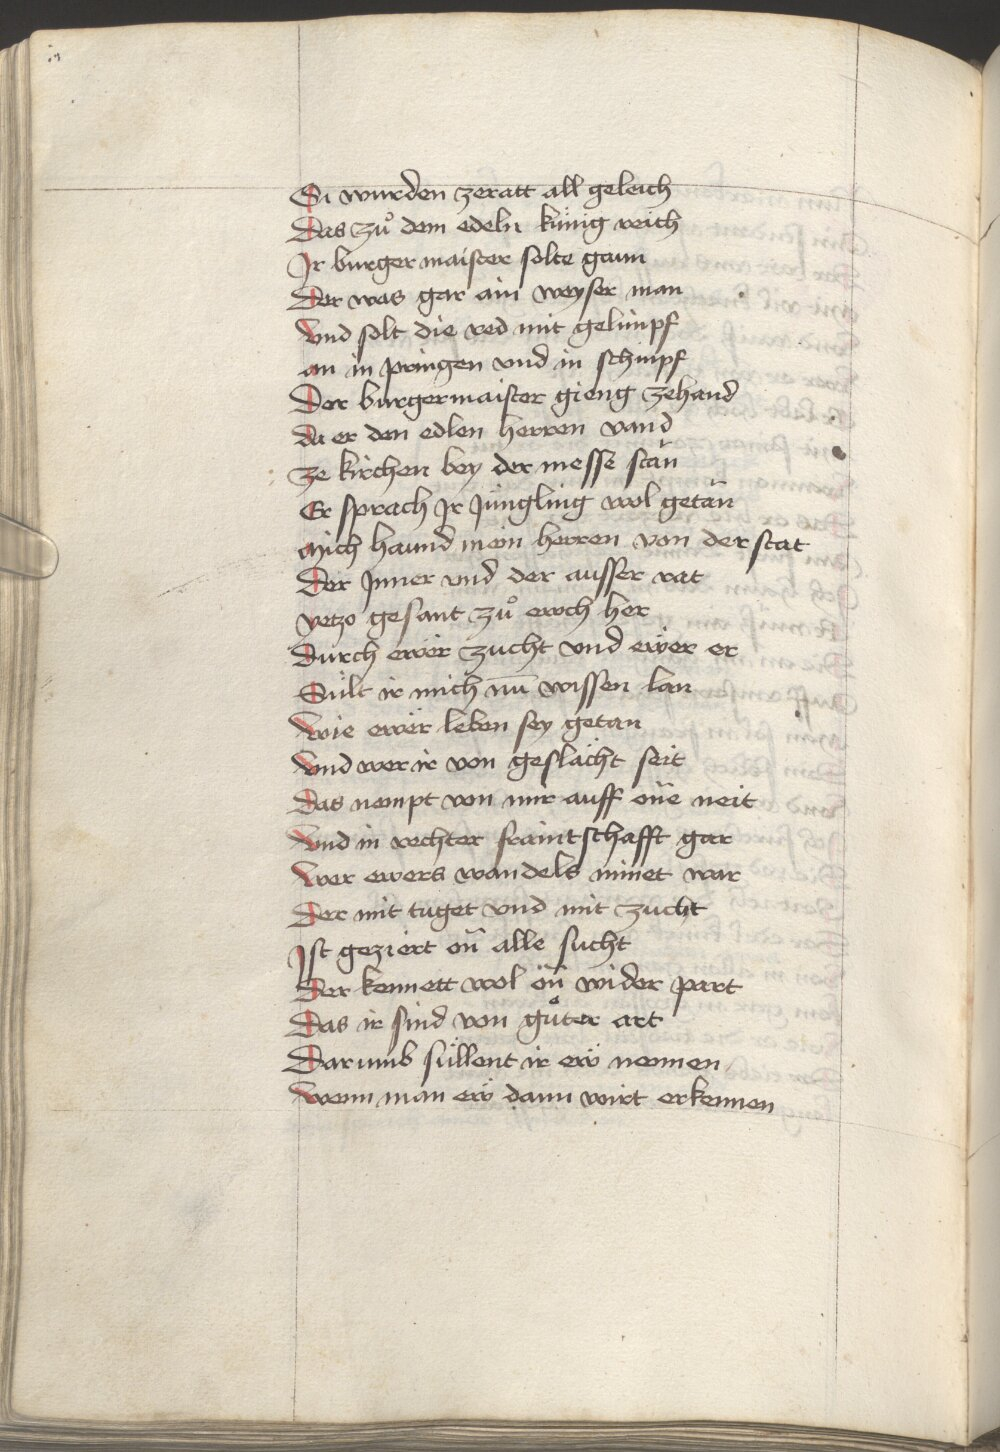 Si wurden zeratt all geleich
Das zuͦ dem edeln künig reich
Jr burgermaister solte gaun
Der was gar ain weyser man
Vnd solt die red mit gelimpf
an in pringen vnd in schimpf
Der burgermaister gieng zehand
da er den edlen herren vand
ze kirchen bey der messe stän
Er sprach Jr Jüngling wol getän
mich haund mein herren von der stat
Der Jnner vnd der ausser rat
yetzo gesant zuͦ ewch her
Durch ewër zucht vnd ewër er
Sült ir mich nū wissen lan
Wie ewër leben sey getan
Vnd wer ir von geslächt seit
Das nempt von mir auff one neit
Vnd in rechter fraintschafft gar
Wer ewers wandels nimet war
Der mit tuget vnd mit zucht
Jst geziert on alle sucht
Der kennett wol on wider part
Das ir sind von guͦter art
Darumb süllent ir ew nennen
Wenn man ew dann wirt erkennen